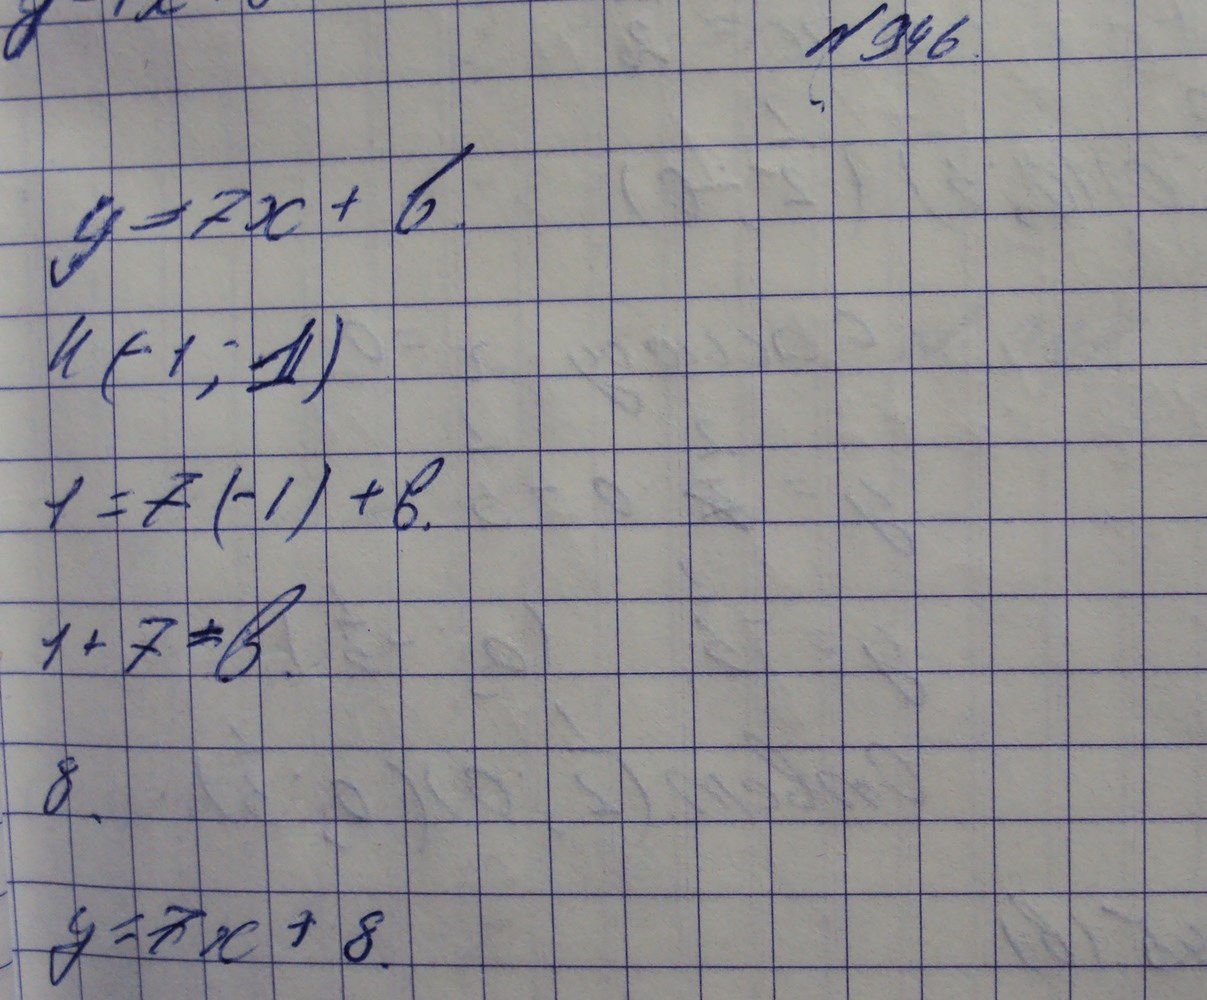 №946.
y=7x+b.
K(-1; 1)
1=7(-1)+b.
1+7=b.
8.
y=7x+8.